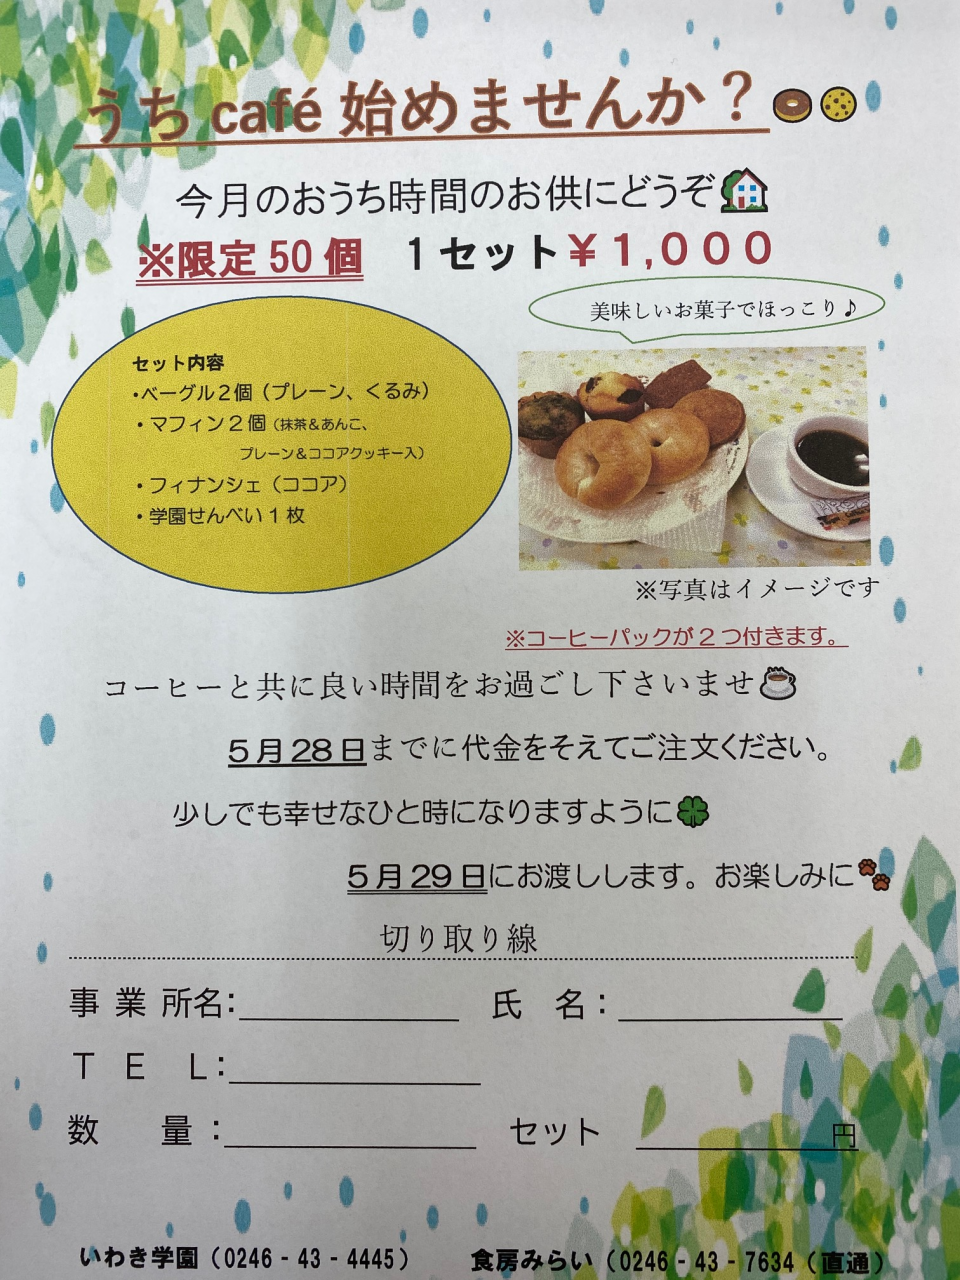 うち café 始めませんか？
今月のおうち時間のお供にどうぞ
※限定 50 個　１セット￥１,０００
美味しいお菓子でほっこり♪
セット内容
・ベーグル２個（プレーン、くるみ）
・マフィン２個（抹茶＆あんこ、
プレーン＆ココアクッキー入）
・フィナンシェ（ココア）
・学園せんべい１枚
※写真はイメージです
※コーヒーパックが２つ付きます。
コーヒーと共に良い時間をお過ごし下さいませ
５月 28 日までに代金をそえてご注文ください。
少しでも幸せなひと時になりますように
５月 29 日にお渡しします。お楽しみに
切り取り線
事 業 所名：　氏　名：
Ｔ　Ｅ　Ｌ：
数　量：　セット　円
いわき学園（0246‐43‐4445）　食房みらい（0246‐43‐7634（直通）